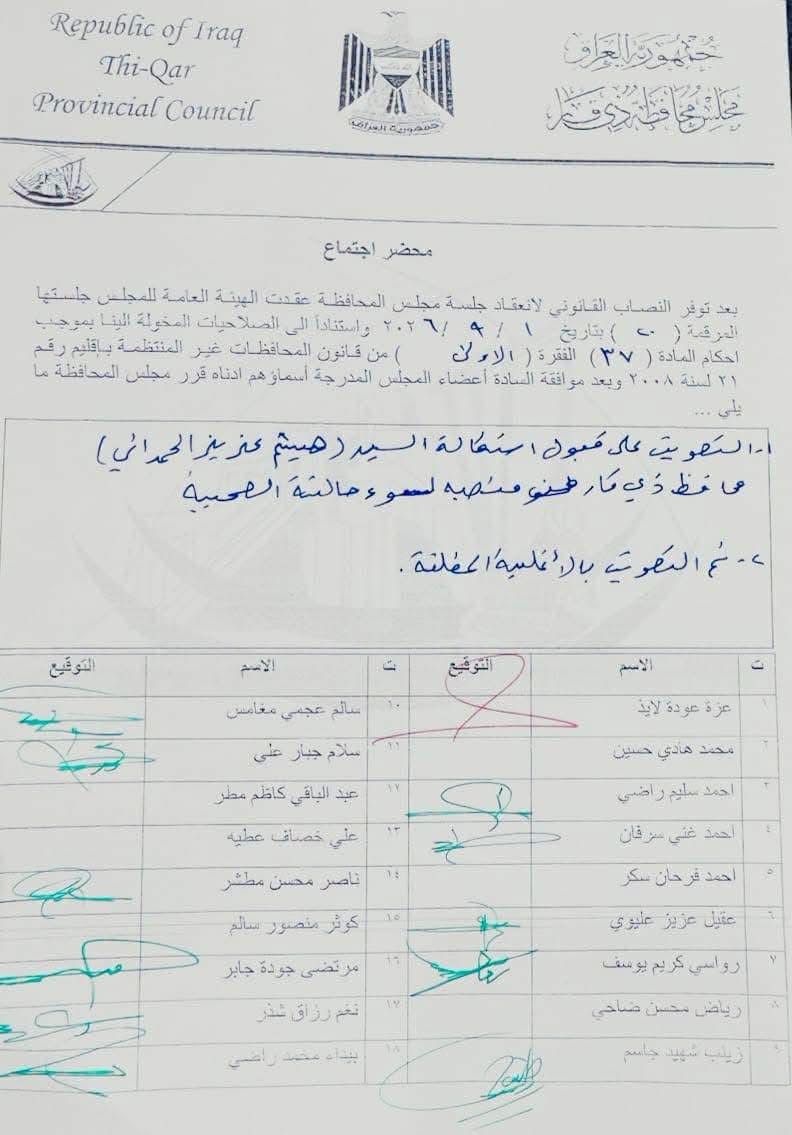 Republic of Iraq
Thi-Qar
Provincial Council
جمهورية العراق
جمهورية العراق
مجلس محافظة ذي قار
محضر اجتماع
بعد توفر النصاب القانوني لانعقاد جلسة مجلس المحافظة عقدت الهيئة العامة للمجلس جلستها
المرقمة ( ٢٠ ) بتاريخ ١ / ٩ / ٢٠٢٦ واستناداً الى الصلاحيات المخولة الينا بموجب
احكام المادة ( ٣٧ ) الفقرة ( الاولى ) من قانون المحافظات غير المنتظمة بإقليم رقم
٢١ لسنة ٢٠٠٨ وبعد موافقة السادة أعضاء المجلس المدرجة أسماؤهم ادناه قرر مجلس المحافظة ما
يلي ...
١- التصويت على قبول استقالة السيد ( هيثم عزيز الحمداني )
محافظ ذي قار من منصبه لسوء حالته الصحية
٢- تم التصويت بالأغلبية المطلقة .
ت الاسم التوقيع ت الاسم التوقيع
١ عزة عودة لايذ ١٠ سالم عجمي مغامس
٢ محمد هادي حسين ١١ سلام جبار علي
٣ احمد سليم راضي ١٢ عبد الباقي كاظم مطر
٤ احمد غني سرفان ١٣ علي خصاف عطيه
٥ احمد فرحان سكر ١٤ ناصر محسن مطشر
٦ عقيل عزيز عليوي ١٥ كوثر منصور سالم
٧ رواسي كريم يوسف ١٦ مرتضى جودة جابر
٨ رياض محسن ضاحي ١٧ نغم رزاق شذر
٩ زينب شهيد جاسم ١٨ بيداء محمد راضي